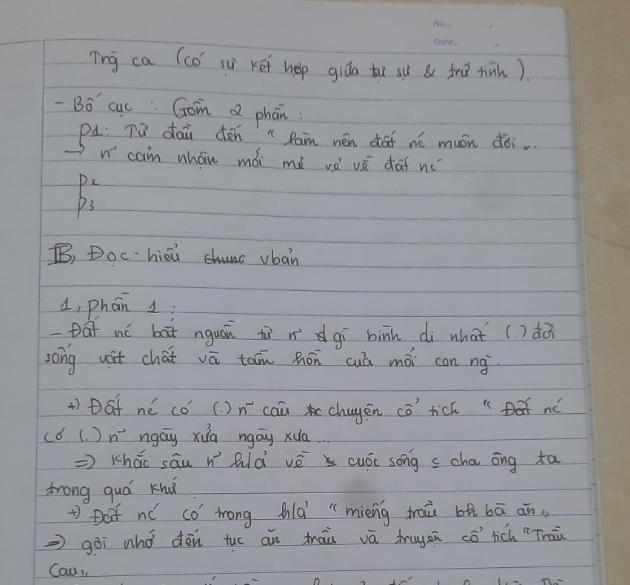 No.
Date.
Trg ca (có sự kết hợp giữa tự sự & trữ tình).
- Bố cục : Gồm 2 phần :
P1: Từ đầu đến "làm nên đất nc muôn đời„
→ n~ cảm nhận mới mẻ về về đất nc
P2
P3
B, Đọc-hiểu chung vbản
1, phần 1 :
- Đất nc bắt nguồn từ n~ gì bình dị nhất (.) đời
sống vật chất và tâm hồn của mỗi con ng.
+) Đất nc có (.) n~ câu chuyện cổ tích " Đất nc
có (.) n~ ngày xửa ngày xưa ...
=> Khắc sâu n~ h/ả về cuộc sống s cha ông ta
trong quá khứ.
+) Đất nc có trong h/ả "miếng trầu bh bà ăn„
=> gợi nhớ đến tục ăn trầu và truyện cổ tích "Trầu
Cau„